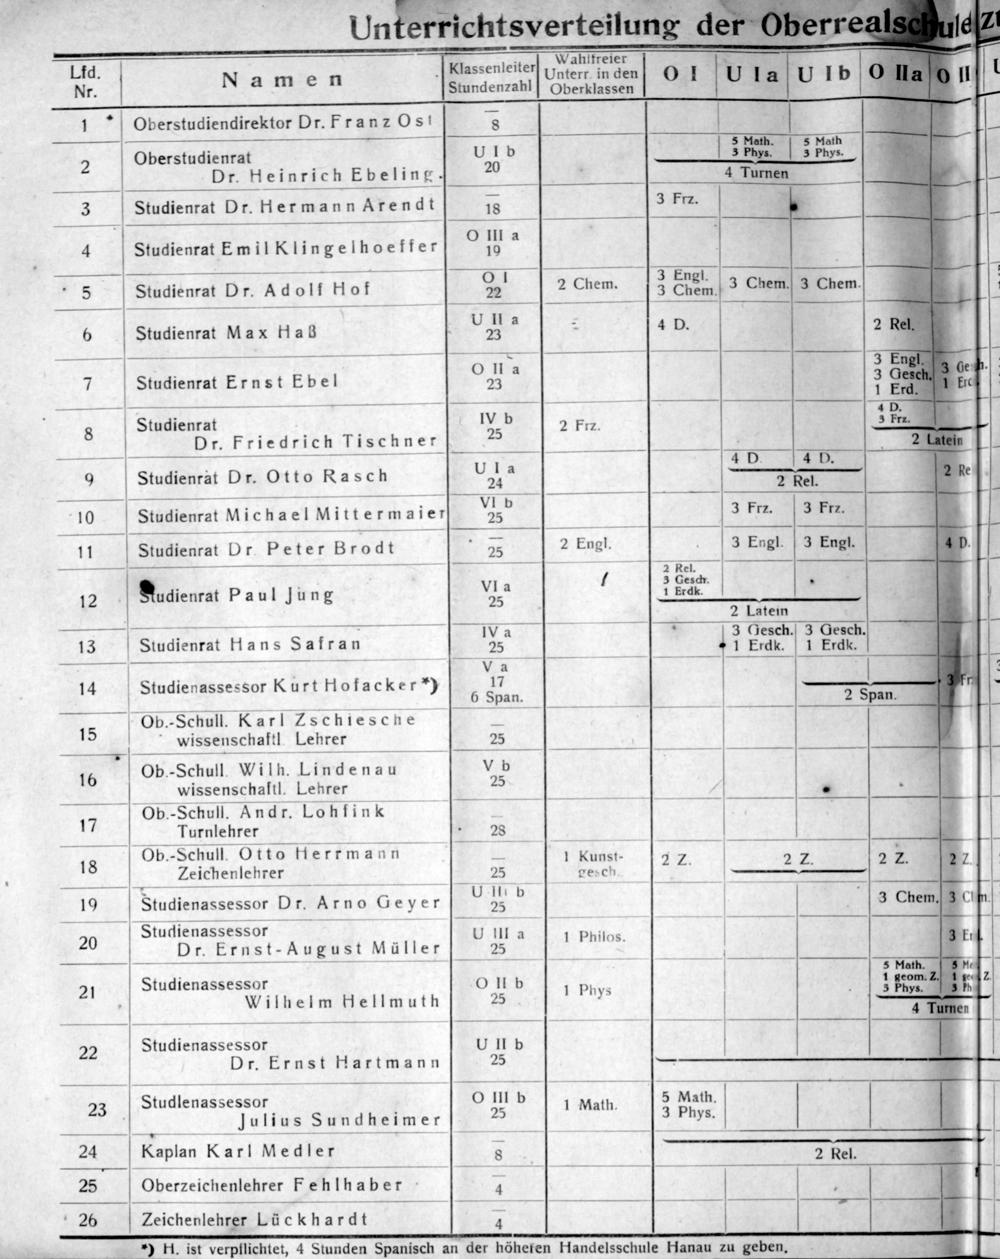 Unterrichtsverteilung der Oberrealschule
Lfd. Nr. Namen Klassenleiter Stundenzahl Wahlfreier Unterr. in den Oberklassen O I U Ia U Ib O IIa O II
1 Oberstudiendirektor Dr. Franz Ost — 8
2 Oberstudienrat U I b 5 Math. 5 Math
Dr. Heinrich Ebeling. 20 3 Phys. 3 Phys.
4 Turnen
3 Studienrat Dr. Hermann Arendt — 18 3 Frz.
4 Studienrat Emil Klingelhoeffer O III a 19
5 Studienrat Dr. Adolf Hof O I 22 2 Chem. 3 Engl. 3 Chem. 3 Chem. 3 Chem.
6 Studienrat Max Haß U II a 23 4 D. 2 Rel.
7 Studienrat Ernst Ebel O II a 23 3 Engl. 3 Gesch. 1 Erd. 3 Gesch. 1 Erd
8 Studienrat IV b 2 Frz. 4 D.
Dr. Friedrich Tischner 25 3 Frz.
2 Latein
9 Studienrat Dr. Otto Rasch U I a 24 4 D 4 D. 2 Re
2 Rel.
10 Studienrat Michael Mittermaier VI b 25 3 Frz. 3 Frz.
11 Studienrat Dr. Peter Brodt — 25 2 Engl. 3 Engl. 3 Engl. 4 D.
12 Studienrat Paul Jung VI a 25 2 Rel. 3 Gesch. 1 Erdk.
2 Latein
13 Studienrat Hans Safran IV a 25 3 Gesch. 1 Erdk. 3 Gesch. 1 Erdk.
14 Studienassessor Kurt Hofacker *) V a 17 6 Span. 3 Fr
2 Span.
15 Ob.-Schull. Karl Zschiesche —
wissenschaftl. Lehrer 25
16 Ob.-Schull. Wilh. Lindenau V b
wissenschaftl. Lehrer 25
17 Ob.-Schull. Andr. Lohfink —
Turnlehrer 28
18 Ob.-Schull. Otto Herrmann — 1 Kunst- 2 Z. 2 Z. 2 Z. 2 Z.
Zeichenlehrer 25 gesch.
19 Studienassessor Dr. Arno Geyer U III b 25 3 Chem. 3 Chem.
20 Studienassessor U III a 1 Philos.
Dr. Ernst-August Müller 25
21 Studienassessor O II b 1 Phys 5 Math. 1 geom. Z. 3 Phys.
Wilhelm Hellmuth 25
4 Turnen
22 Studienassessor U II b
Dr. Ernst Hartmann 25
23 Studienassessor O III b 1 Math. 5 Math.
Julius Sundheimer 25 3 Phys.
24 Kaplan Karl Medler — 8 2 Rel.
25 Oberzeichenlehrer Fehlhaber — 4
26 Zeichenlehrer Lückhardt — 4
*) H. ist verpflichtet, 4 Stunden Spanisch an der höheren Handelsschule Hanau zu geben.